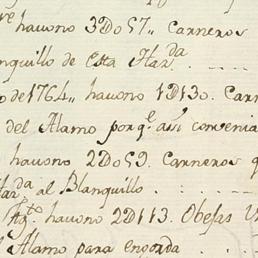 re havono 3Do57,, Carneros
nquillo de Esta Hazda
o de 1764,, havono 1D130. Carn
del Alamo porqe. assi convenia
havono 2Do59. Carneros q
da al Blanquillo
Agto havono 2D113. Obejas V
l Alamo para engorda